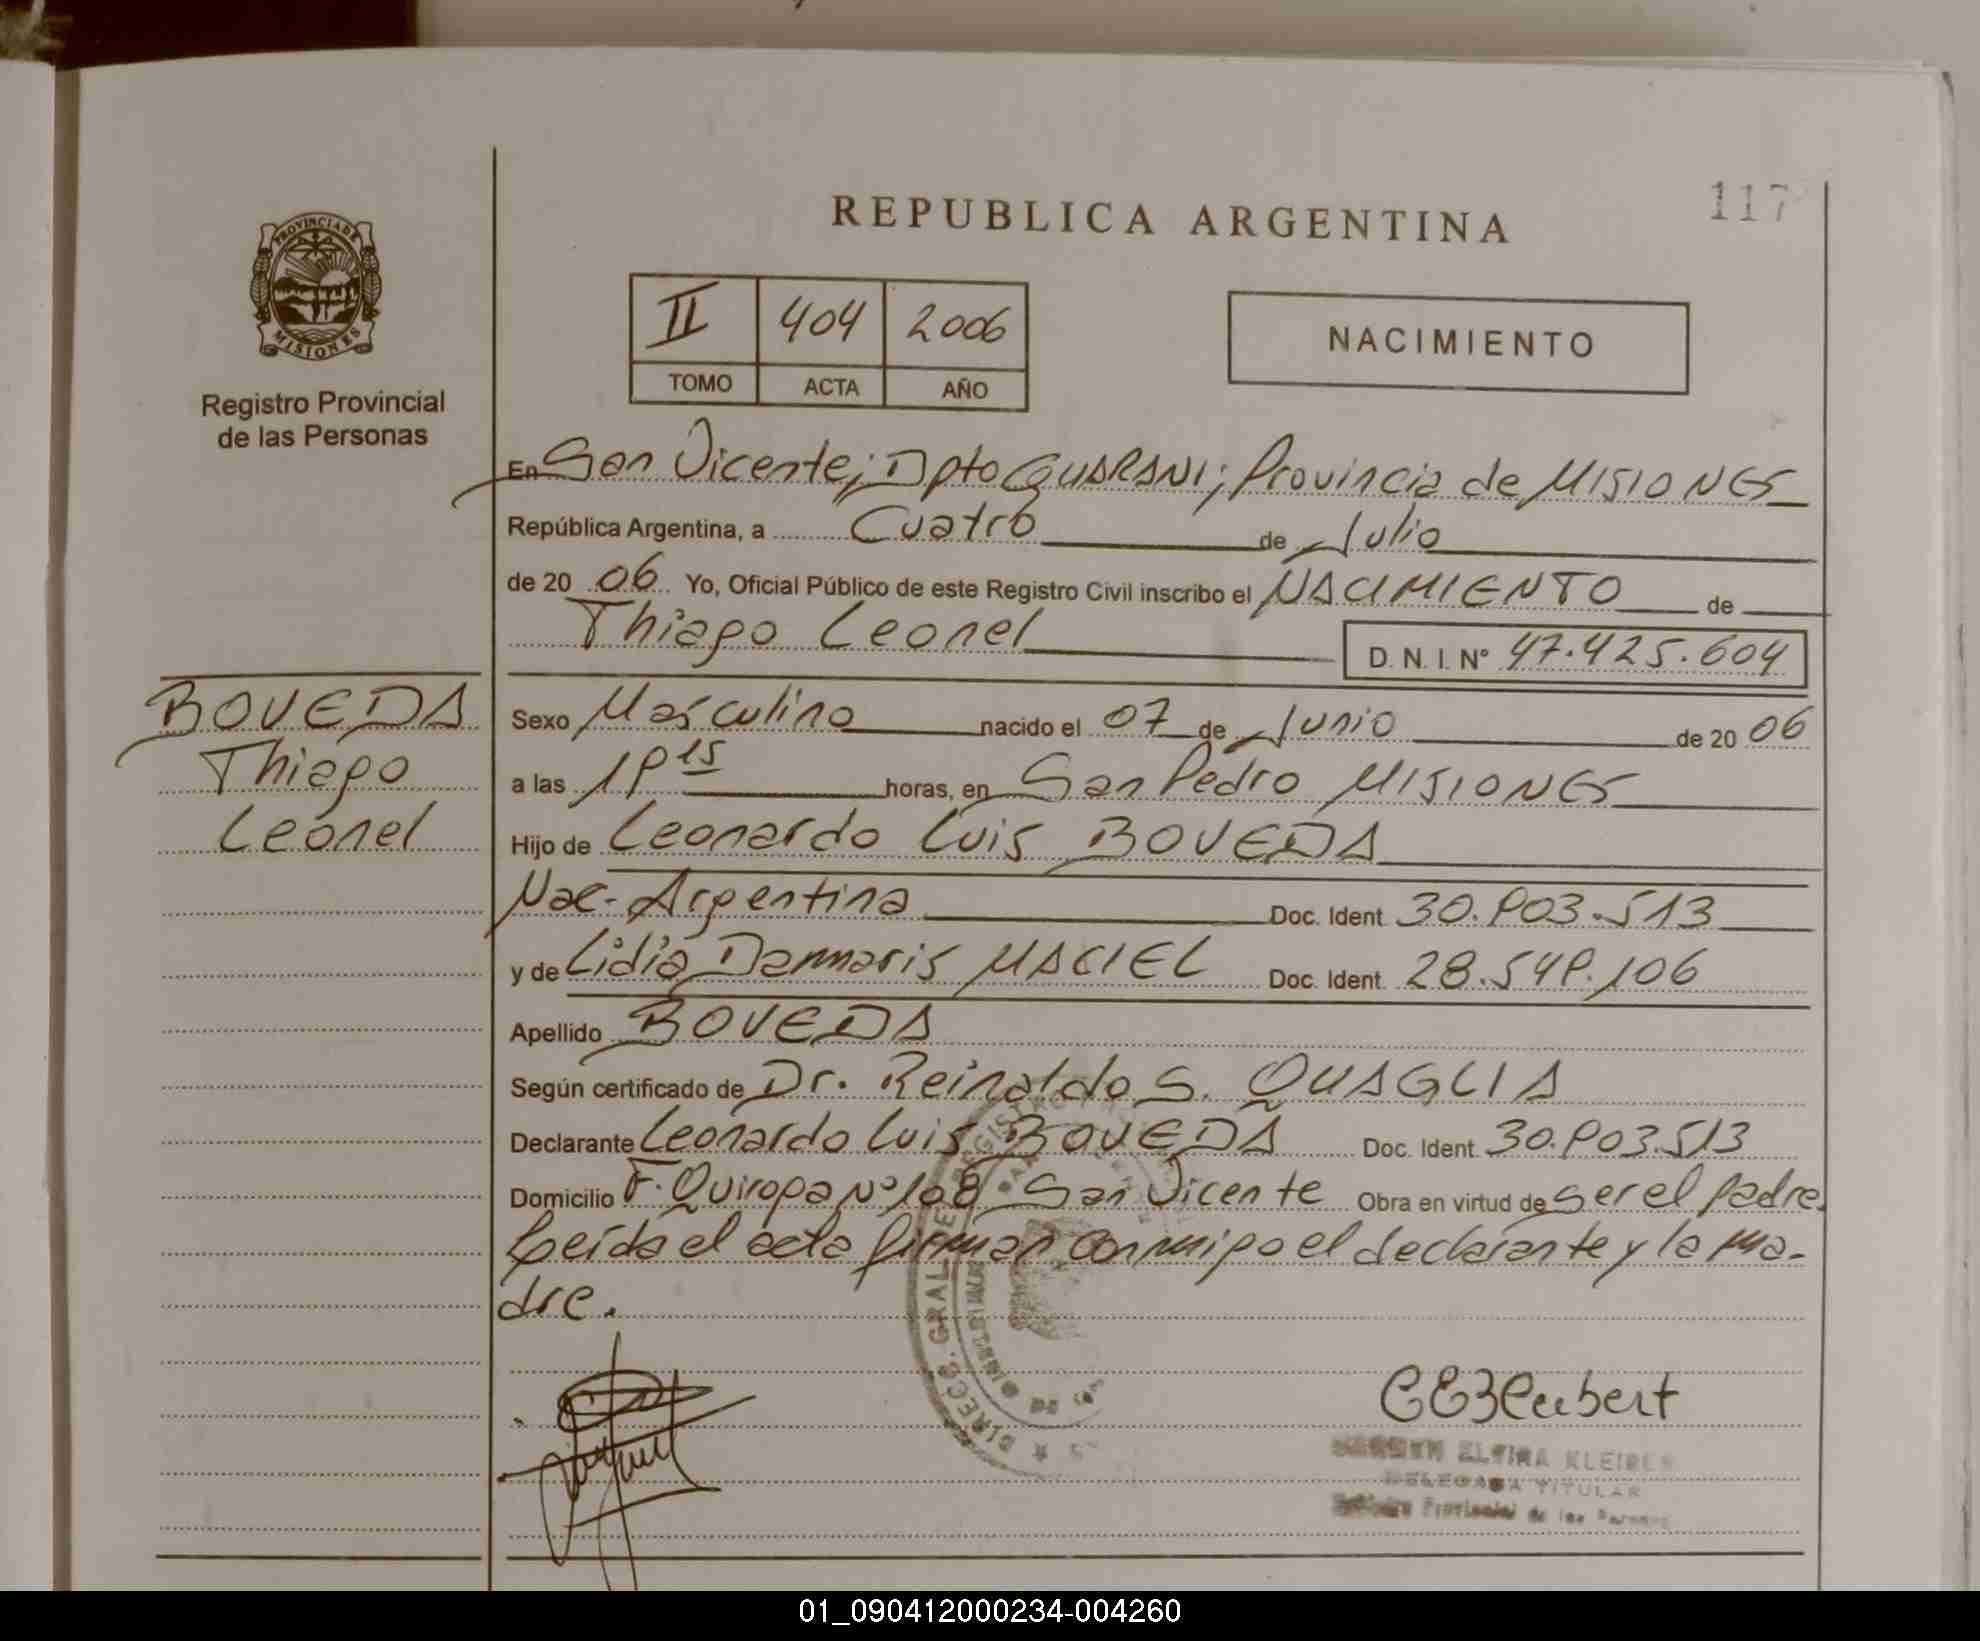 117
REPUBLICA ARGENTINA
PROVINCIA DE
MISIONES
Registro Provincial
de las Personas
II 404 2006
TOMO ACTA AÑO
NACIMIENTO
En San Vicente; Dpto GUARANI; Provincia de MISIONES
República Argentina, a Cuatro de Julio
de 20 06 Yo, Oficial Público de este Registro Civil inscribo el NACIMIENTO de
Thiago Leonel D. N. I. N° 47.425.604
BOVEDA
Thiago
Leonel
Sexo Masculino nacido el 07 de Junio de 20 06
a las 19 15 horas, en San Pedro MISIONES
Hijo de Leonardo Luis BOVEDA
Nac. Argentina Doc. Ident. 30.903.513
y de Lidia Dammaris MACIEL Doc. Ident. 28.549.106
Apellido BOVEDA
Según certificado de Dr. Reinaldo S. QUAGLIA
Declarante Leonardo Luis BOVEDA Doc. Ident. 30.903.513
Domicilio F. Quiroga N° 108 San Vicente Obra en virtud de ser el padre.
Leída el acta firman conmigo el declarante y la ma-
dre.
ELVIRA
DELEGADA TITULAR
Provincial de las
01_090412000234-004260